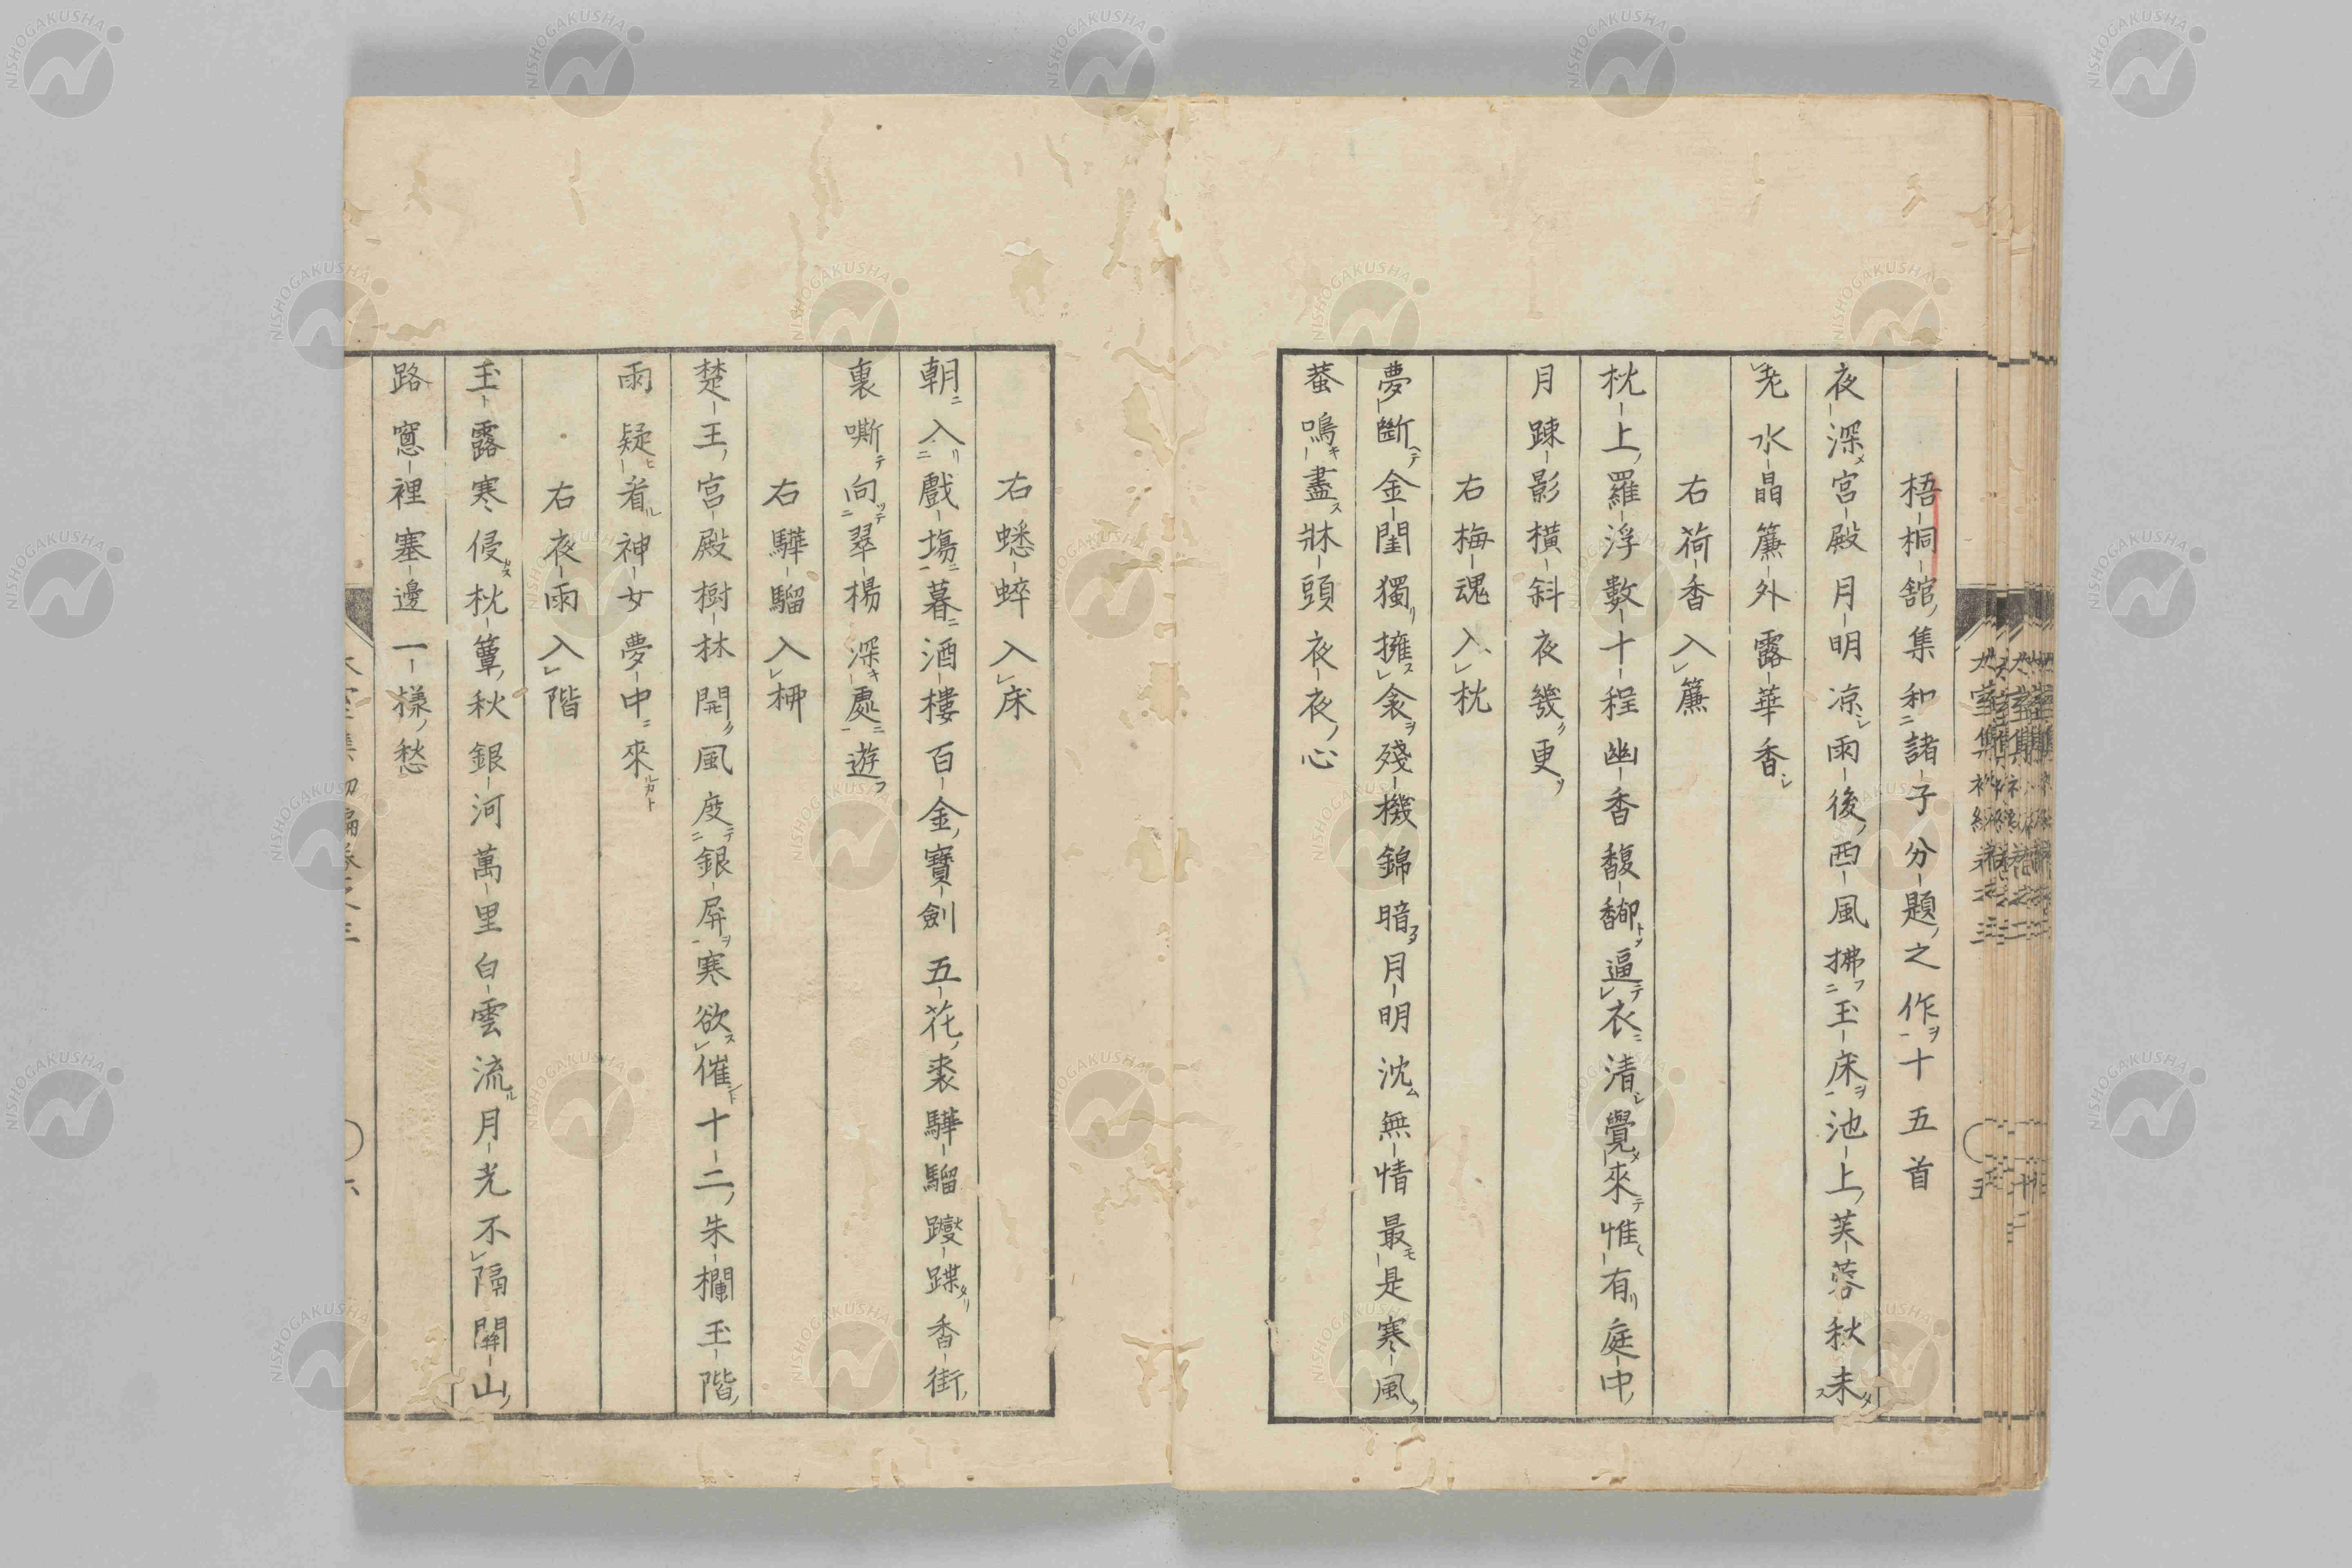 梧桐舘集和諸子分題之作十五首
夜深宮殿月明凉雨後西風拂玉床池上芙蓉秋未
老水晶簾外露華香
右荷香入簾
枕上羅浮數十程幽香馥郁逼衣清覺來惟有庭中
月踈影橫斜夜幾更
右梅魂入枕
夢斷金閨獨擁衾殘機錦暗月明沈無情最是寒風
蛬鳴盡牀頭夜夜心
右蟋蟀入床
朝入戲塲暮酒樓百金寶劍五花裘驊騮躞蹀香街
裏嘶向翠楊深處遊
右驊騮入柳
楚王宮殿樹林開風度銀屏寒欲催十二朱欄玉階
雨疑看神女夢中來
右夜雨入階
玉露寒侵枕簟秋銀河萬里白雲流月光不隔關山
路窻裡塞邊一樣愁
NISHOGAKUSHA